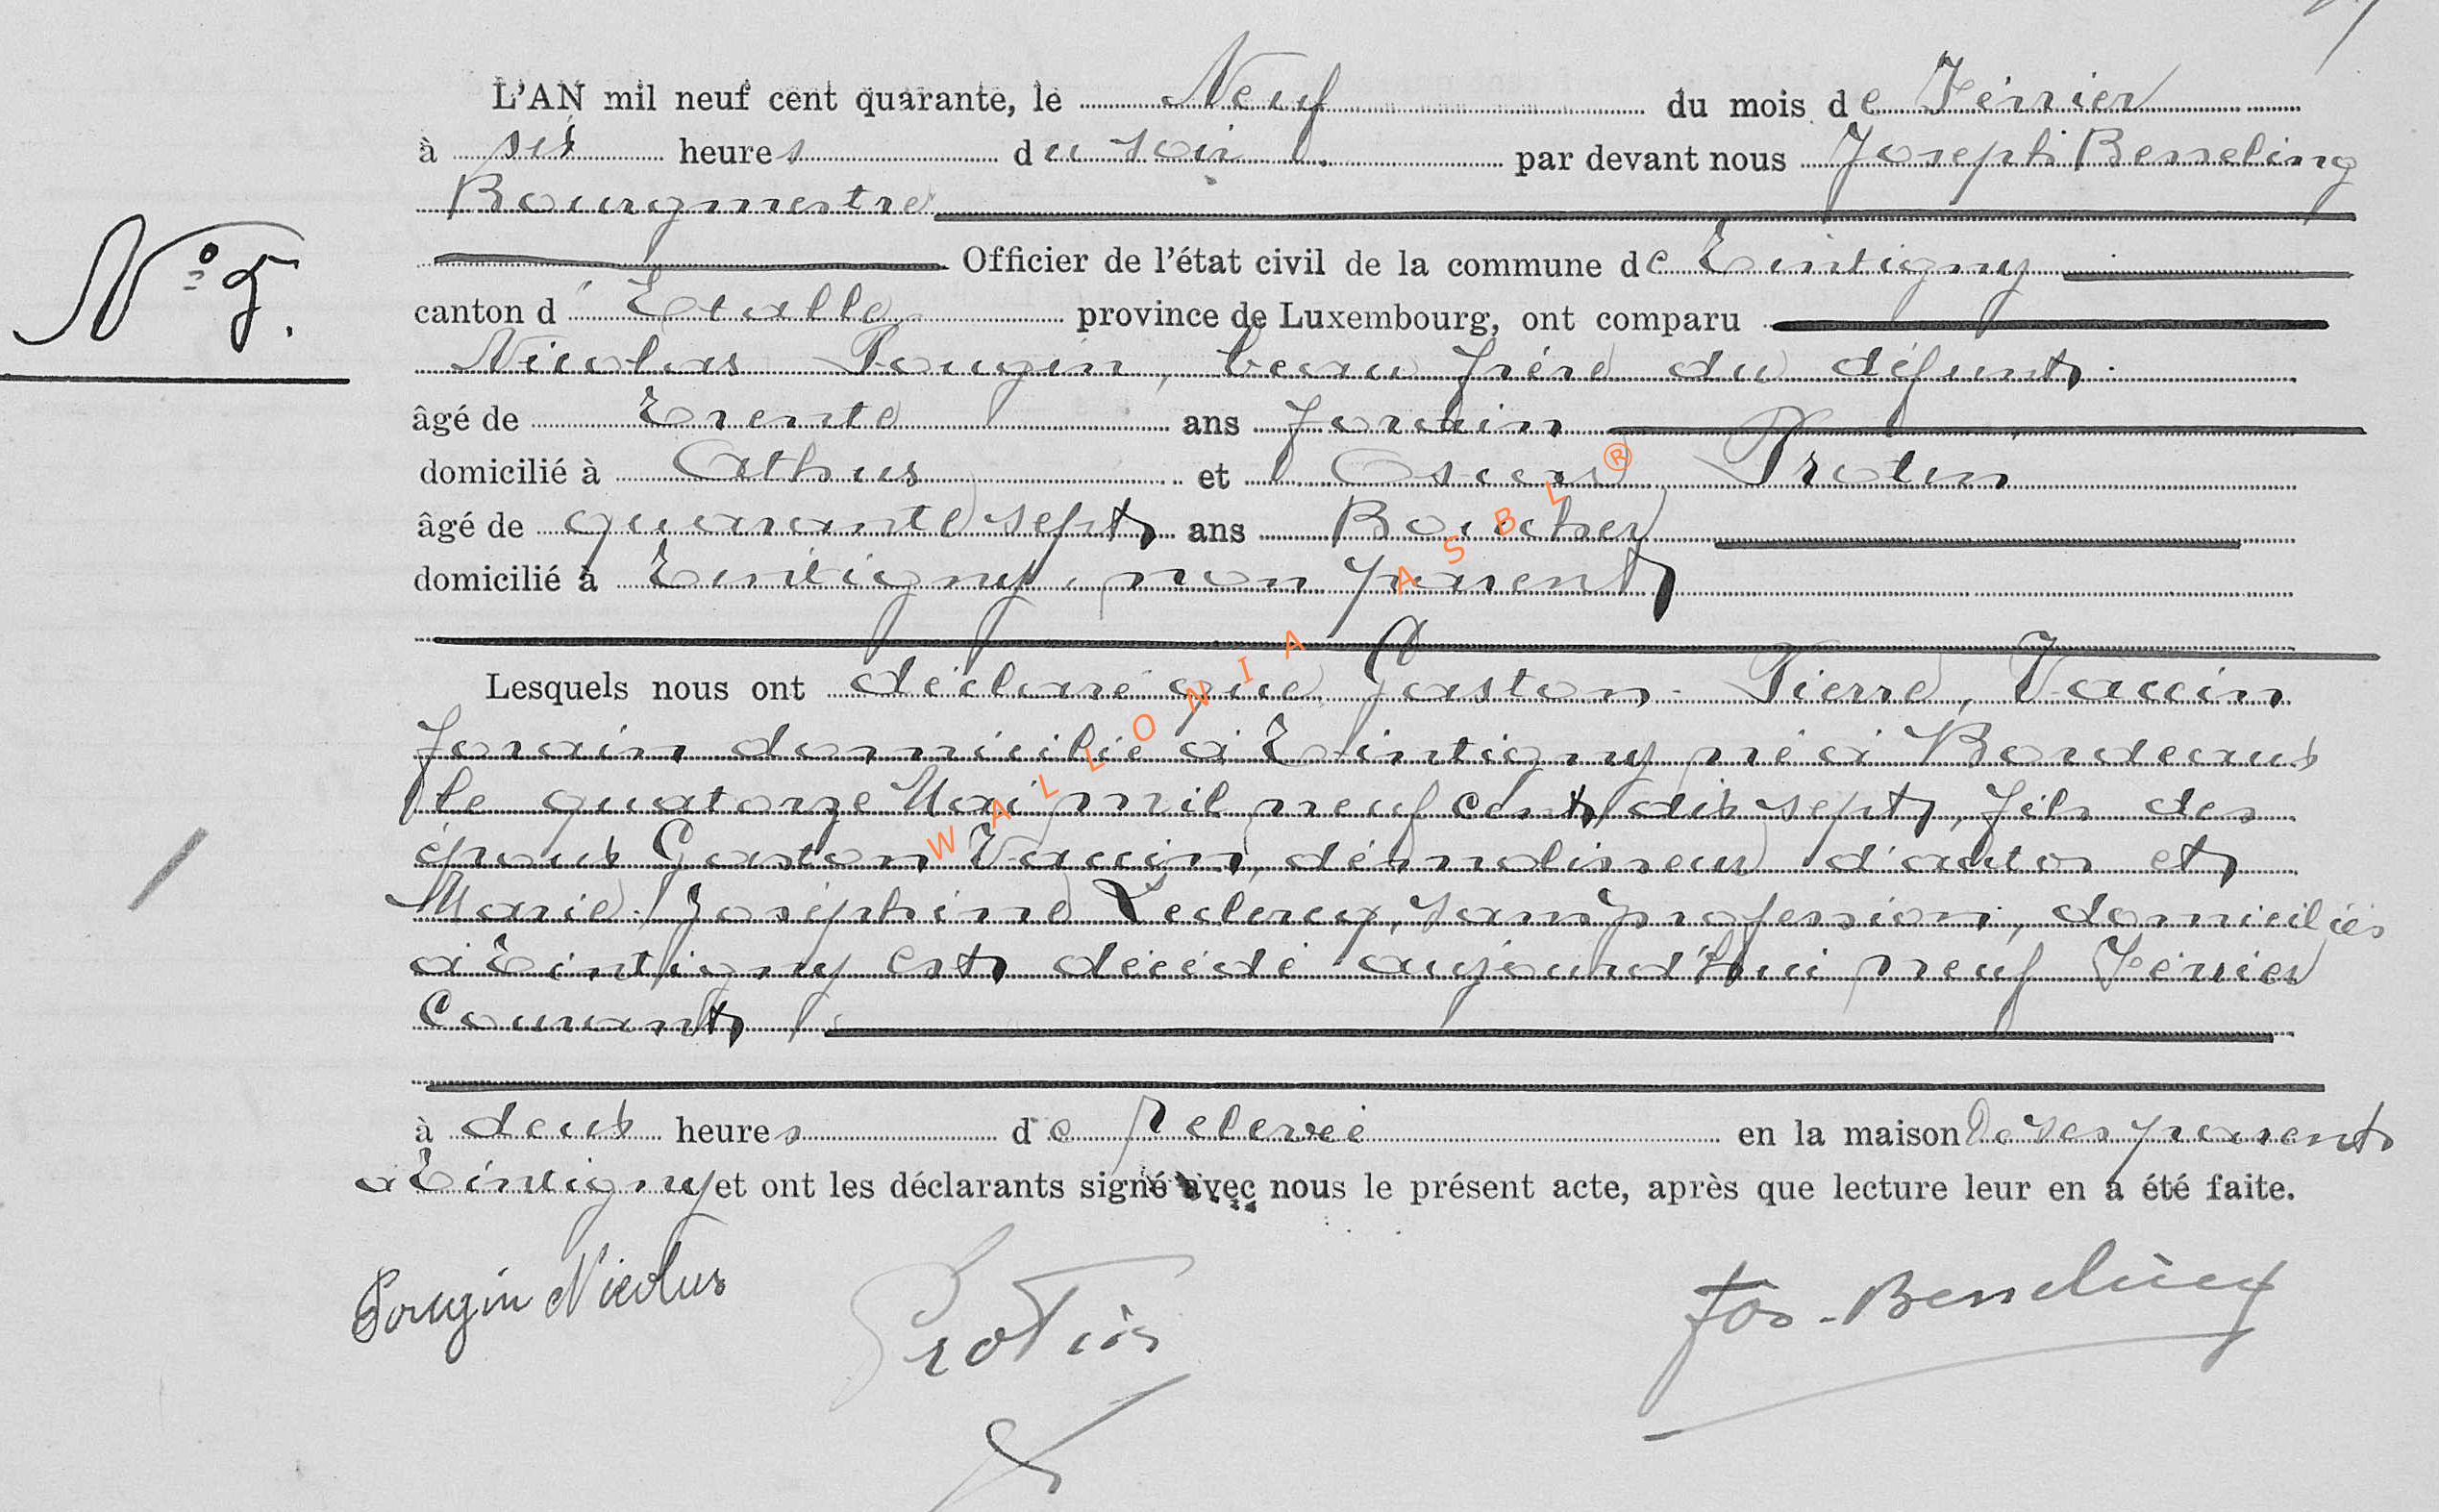 L'AN mil neuf cent quarante, le Neuf du mois de Février
à six heures du soir par devant nous Joseph Besseling
Bourgmestre
N° 5.
Officier de l'état civil de la commune de Tintigny
canton d'Etalle province de Luxembourg, ont comparu
Nicolas Pougin, beau frère du défunt
âgé de Trente ans forain
domicilié à Athus et Oscar Protin
âgé de quarante sept ans Boucher
domicilié à Tintigny, non parent
Lesquels nous ont déclaré que Gaston Pierre, Vaccin
forain domicilié à Tintigny né à Bordeaux
le quatorze Mai mil neuf cent dix sept, fils des
époux Gaston Vaccin, démolisseur d'autos et
Marie Joséphine Leclercq, sans profession, domiciliés
à Tintigny est décédé aujourd'hui neuf Février
Courant
à deux heures de relevée en la maison de ses parents
à Tintigny et ont les déclarants signé avec nous le présent acte, après que lecture leur en a été faite.
Pougin Nicolas Protin Jos. Besseling
WALLONIA ASBL ®